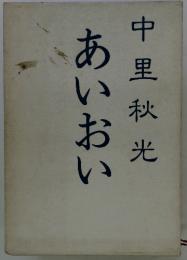 中里秋光
あいおい